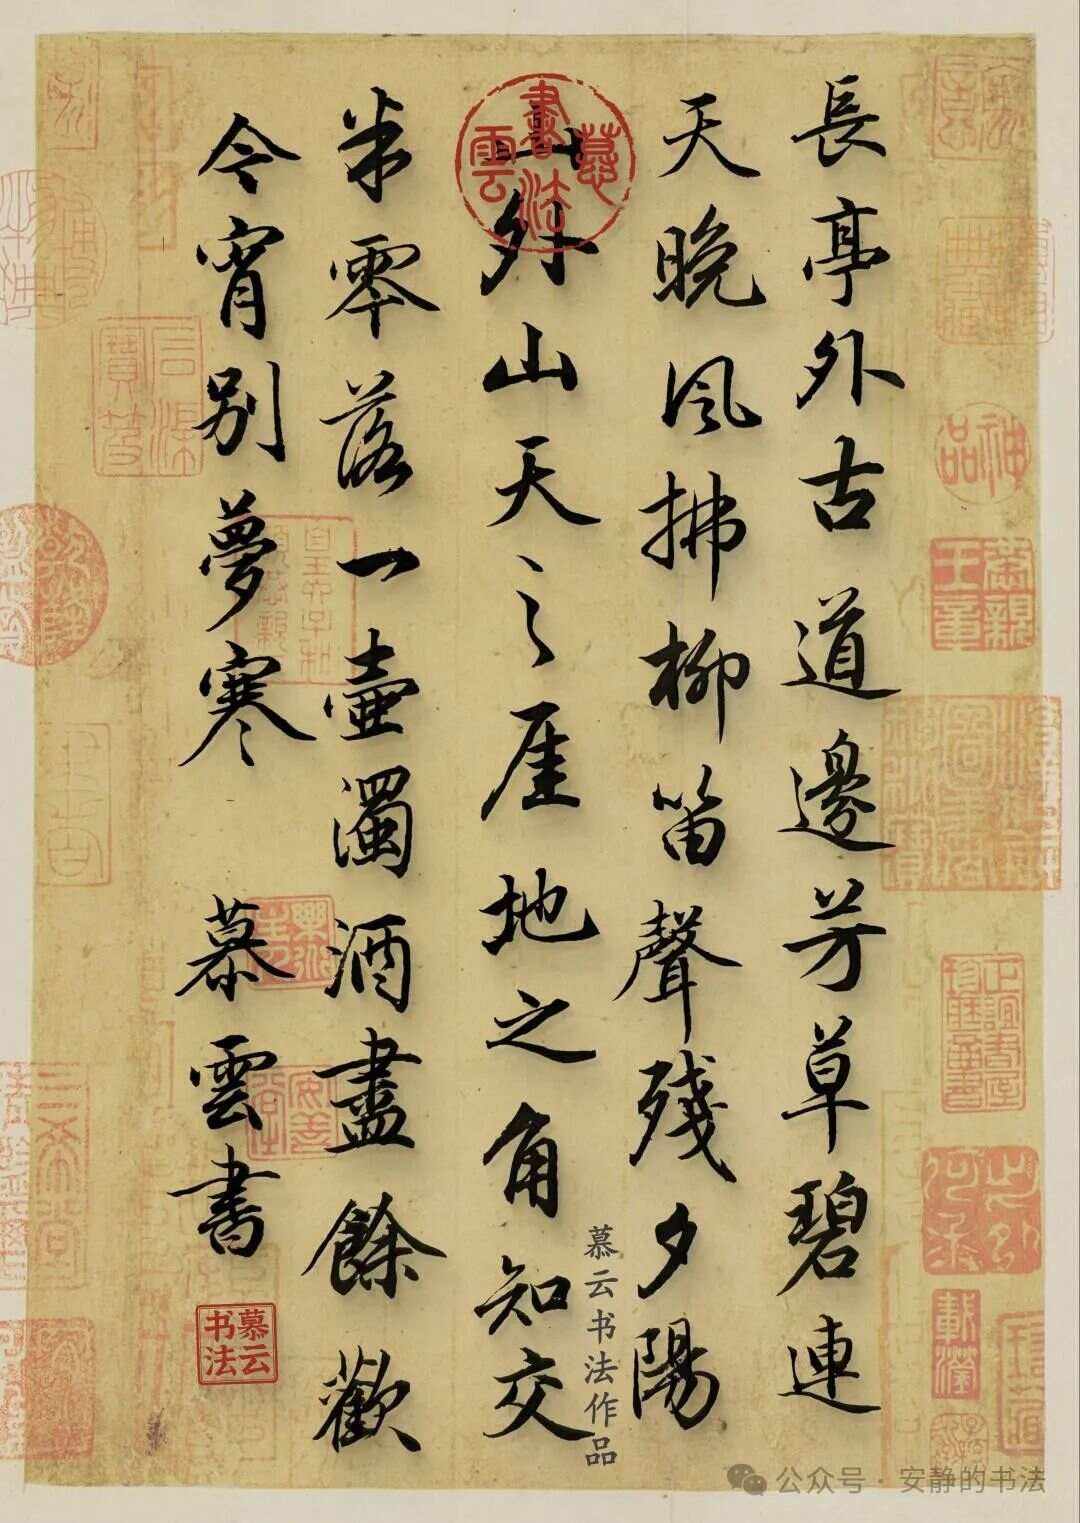 長亭外古道邊芳草碧連
天晚風拂柳笛聲殘夕陽
山外山天之涯地之角知交
半零落一壺濁酒盡餘歡
今宵別夢寒
慕雲書
慕雲書法
慕云书法
慕云书法作品
神品
公众号·安静的书法